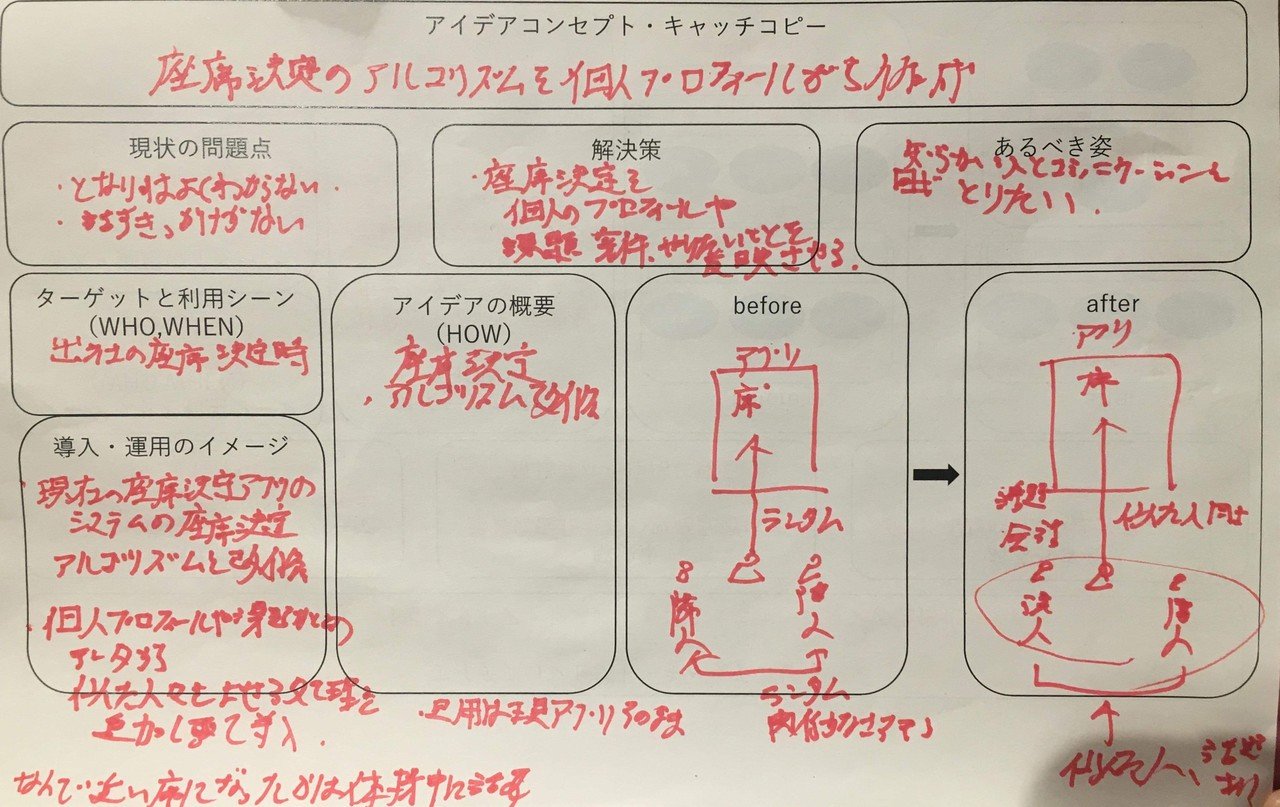 アイデアコンセプト・キャッチコピー
座席決定のアルゴリズムを個人プロフィールから作成
現状の問題点
・となりはよくわからない・
・はなすきっかけがない
解決策
・座席決定を
個人のプロフィールや
課題 案件、やり度いことを
反映させる.
あるべき姿
知らない人とコミュニケーションを
とりたい.
ターゲットと利用シーン
(WHO,WHEN)
出社の座席決定時
アイデアの概要
(HOW)
座席決定
・アルゴリズム改修
before
アプリ
席
ランダム
隣人
隣人
ランダム
after
アプリ
席
話題
会話
似た人同士
隣人
隣人
似た人、
導入・運用のイメージ
・現在の座席決定アプリの
システムの座席決定
アルゴリズムを改修
・個人プロフィールや
データから
似た人々をよせる処理を
追加して導入.
・運用は現アプリのまま
なんで近い席になったかは